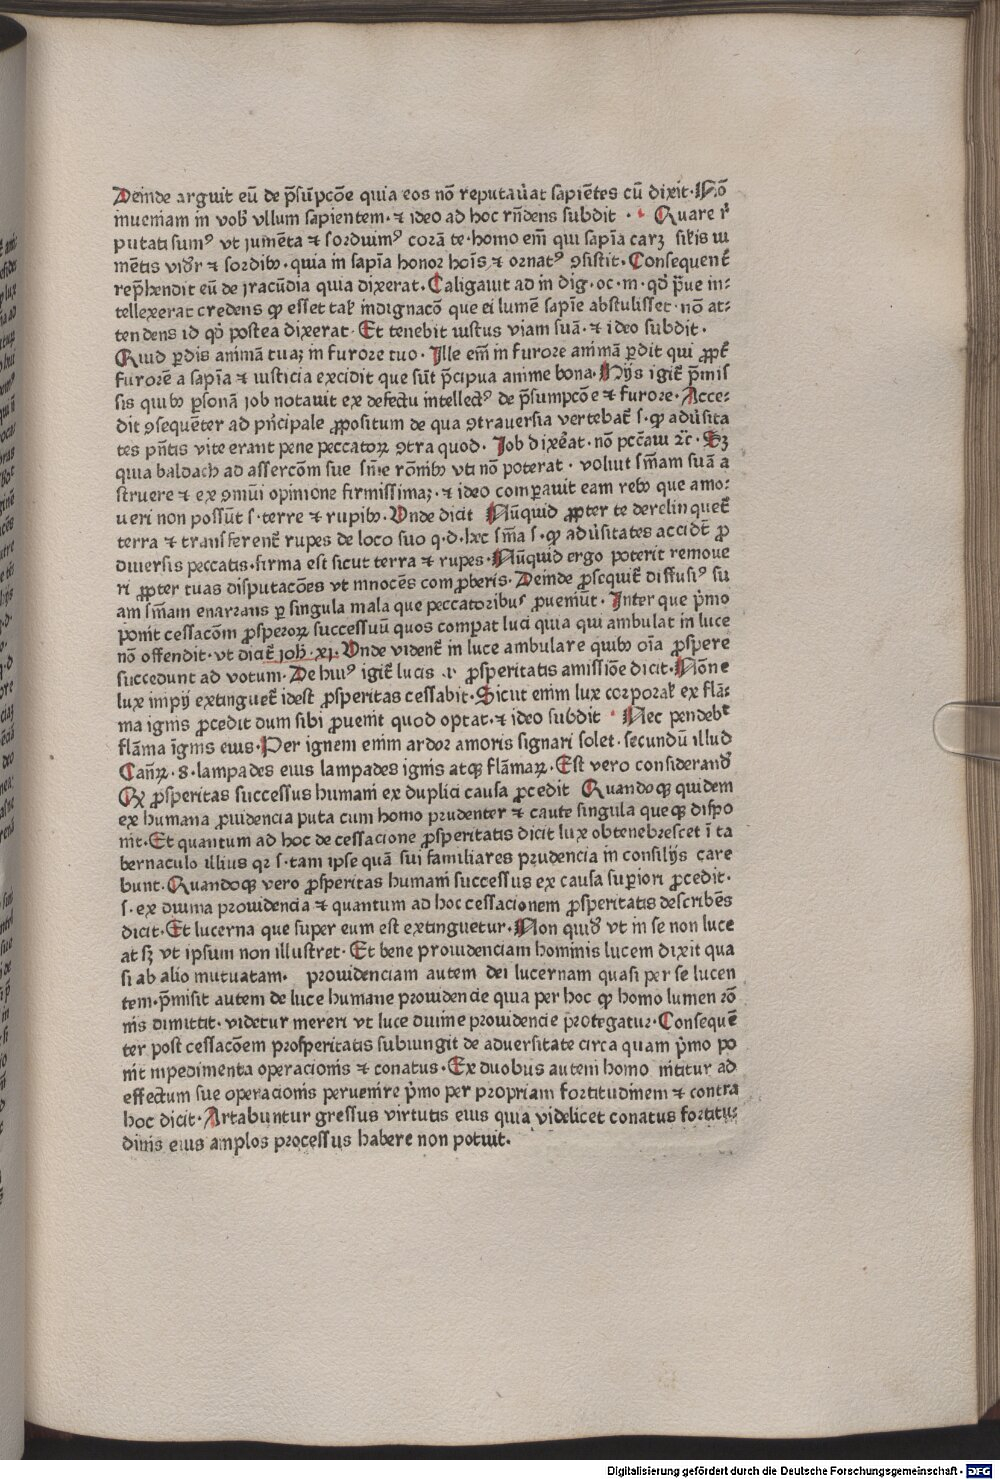 Deinde arguit eū de p̄sūpcōe quia eos nō reputaůat sapiētes cū dixit·Nō
inueniam in vob̄ vllum sapientem·⁊ ideo ad hoc rn̄dens subdit · Quare r̄
putati sumꝰ vt iumēta ⁊ sorduimꝰ corā te·homo em̄ qui sapīa carꝫ sil̄is iu
mētis vidr̄ ⁊ sordibꝰ·quia in sapīa honor hoīs ⁊ ornatꝰ ꝯsistit·Consequent̄
rep̄hendit eū de iracūdia quia dixerat·Caligauit ad in dig·oc·m·qd̓ p̄ue in-
tellexerat credens ꝙ esset tal̄ indignacō que ei lumē sapīe abstulisset·nō at-
tendens id qd̓ postea dixerat·Et tenebit iustus viam suā·⁊ ideo subdit·
Quid ꝑdis animā tuaꝫ in furore tuo·Ille em̄ in furore animā ꝑdit qui ꝓpt̄
furorē a sapīa ⁊ iusticia excidit que sūt p̄cipua anime bona·Hijs igit̄ p̄mis
sis quibꝰ ꝑsonā iob notauit ex defectu intellectꝰ de p̄sumpcōe ⁊ furore·Acce-
dit ꝯsequēter ad pn̄cipale ꝓpositum de qua ꝯtrauersia vertebat̄ s·ꝙ adůsita
tes pn̄tis vite erant pene peccatoꝝ ꝯtra quod·Iob dixēat·nō pccāui ⁊c̄·Sꝫ
quia baldach ad assercōm sue sn̄ie rōnibꝰ vti nō poterat·voluit sm̄am suā a
struere ⁊ ex ꝯmūi opinione firmissimaꝫ·⁊ ideo comꝑauit eam rebꝰ que amo-
ueri non possūt s·terre ⁊ rupibꝰ·Vnde dicit Nūquid ꝓpter te derelinquet̄
terra ⁊ transferent̄ rupes de loco suo q·d·hec sm̄a s·ꝙ adůsitates accidt̄ ꝓ
diuersis peccatis·firma est sicut terra ⁊ rupes·Nūquid ergo poterit remoue
ri ꝓpter tuas disputacōes vt innocēs comꝓberis·Deinde ꝓsequit̄ diffusiꝰ su
am sm̄am enarrans ꝑ singula mala que peccatoribus ꝓueniūt·Inter que p̓mo
ponit cessacōm ꝓsperoꝝ successuū quos comꝑat luci quia qui ambulat in luce
nō offendit·vt dicit̄ joh̄·xj·Vnde vident̄ in luce ambulare quibꝰ oīa ꝓspere
succedunt ad votum·De huiꝰ igit̄ lucis ·i· ꝓsperitatis amissiōe dicit·Nōne
lux impij extinguet̄ idest ꝓsperitas cessabit·Sicut enim lux corporal̄ ex flā-
ma ignis ꝓcedit dum sibi ꝓuenit quod optat·⁊ ideo subdit · Nec pendebᵗ
flāma īgnis eius·Per ignem enim ardor amoris signari solet·secundū illud
Can̄ꝝ·8·lampades eius lampades ignis atqꝫ flāmaꝝ·Est vero considerand̓
Qꝫ ꝓsperitas successus humani ex duplici causa ꝓcedit Quandoqꝫ quidem
ex humana ꝓuidencia puta cum homo prudenter ⁊ caute singula queqꝫ dispo
nit·Et quantum ad hoc de cessacione ꝓsperitatis dicit lux obtenebrescet ī ta
bernaculo illius qꝛ s·tam ipse quā sui familiares prudencia in consilijs care
bunt·Quandoqꝫ vero ꝓsperitas humani successus ex causa suꝑiori ꝓcedit·
s·ex diuina prouidencia ⁊ quantum ad hoc cessacionem ꝓsperitatis describēs
dicit·Et lucerna que super eum est extinguetur·Non quid̓ vt in se non luce
at sꝫ vt ipsum non illustret·Et bene prouidenciam hominis lucem dixit qua
si ab alio mutuatam· prouidenciam autem dei lucernam quasi per se lucen
tem·p̄misit autem de luce humane prouidencie quia per hoc ꝙ homo lumen rō
nis dimittit·videtur mereri vt luce diuine prouidencie protegatur·Consequē
ter post cessacōem prosperitatis subiungit de aduersitate circa quam p̓mo po
nit inpedimenta operacionis ⁊ conatus·Ex duobus autem homo nititur ad
effectum sue operacionis peruenire p̓mo per propriam fortitudinem ⁊ contra
hoc dicit·Artabuntur gressus virtutis eius quia videlicet conatus fortitu-
dinis eius amplos processus habere non potuit.
Digitalisierung gefördert durch die Deutsche Forschungsgemeinschaft - DFG